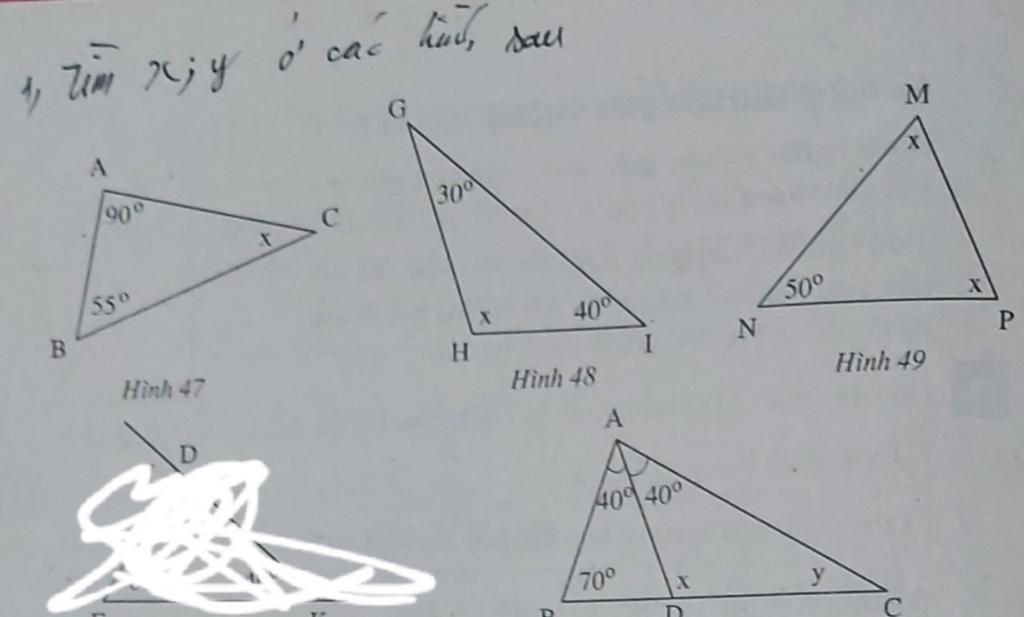 1, Tìm x; y ở các hình sau
G
M
A
90°
C
30°
x
x
55°
x
40°
50°
x
B
H
I
N
P
Hình 47
Hình 48
Hình 49
A
D
40°
40°
70°
x
y
B
D
C